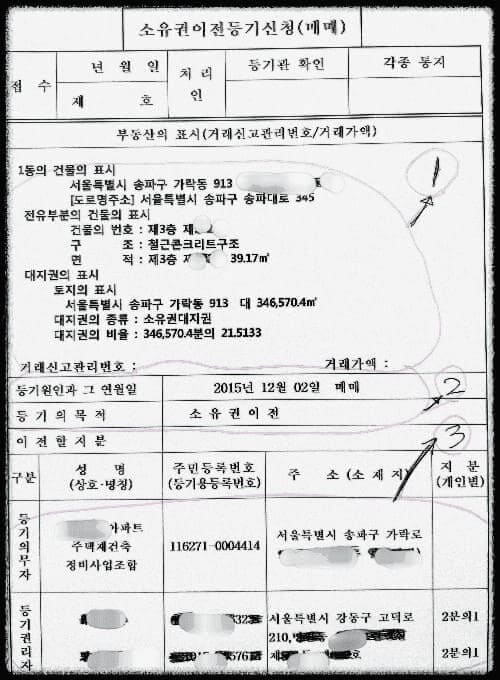 소유권이전등기신청(매매)
접 수
년 월 일
제 호
처 리 인
등기관 확인
각종 통지
부동산의 표시(거래신고관리번호/거래가액)
1동의 건물의 표시
서울특별시 송파구 가락동 913
[도로명주소] 서울특별시 송파구 송파대로 345
전유부분의 건물의 표시
건물의 번호 : 제3층 제
구 조 : 철근콘크리트구조
면 적 : 제3층 제 39.17㎡
대지권의 표시
토지의 표시
서울특별시 송파구 가락동 913 대 346,570.4㎡
대지권의 종류 : 소유권대지권
대지권의 비율 : 346,570.4분의 21.5133
거래신고관리번호 : 거래가액 :
1
등기원인과 그 연월일 2015년 12월 02일 매매
2
등 기 의 목 적 소 유 권 이 전
3
이 전 할 지 분
구분
성 명
(상호·명칭)
주민등록번호
(등기용등록번호)
주 소 (소 재 지)
지 분
(개인별)
등기의무자
아파트
주택재건축
정비사업조합
116271-0004414
서울특별시 송파구 가락로
등기권리자
서울특별시 강동구 고덕로
210,
2분의1
2분의1